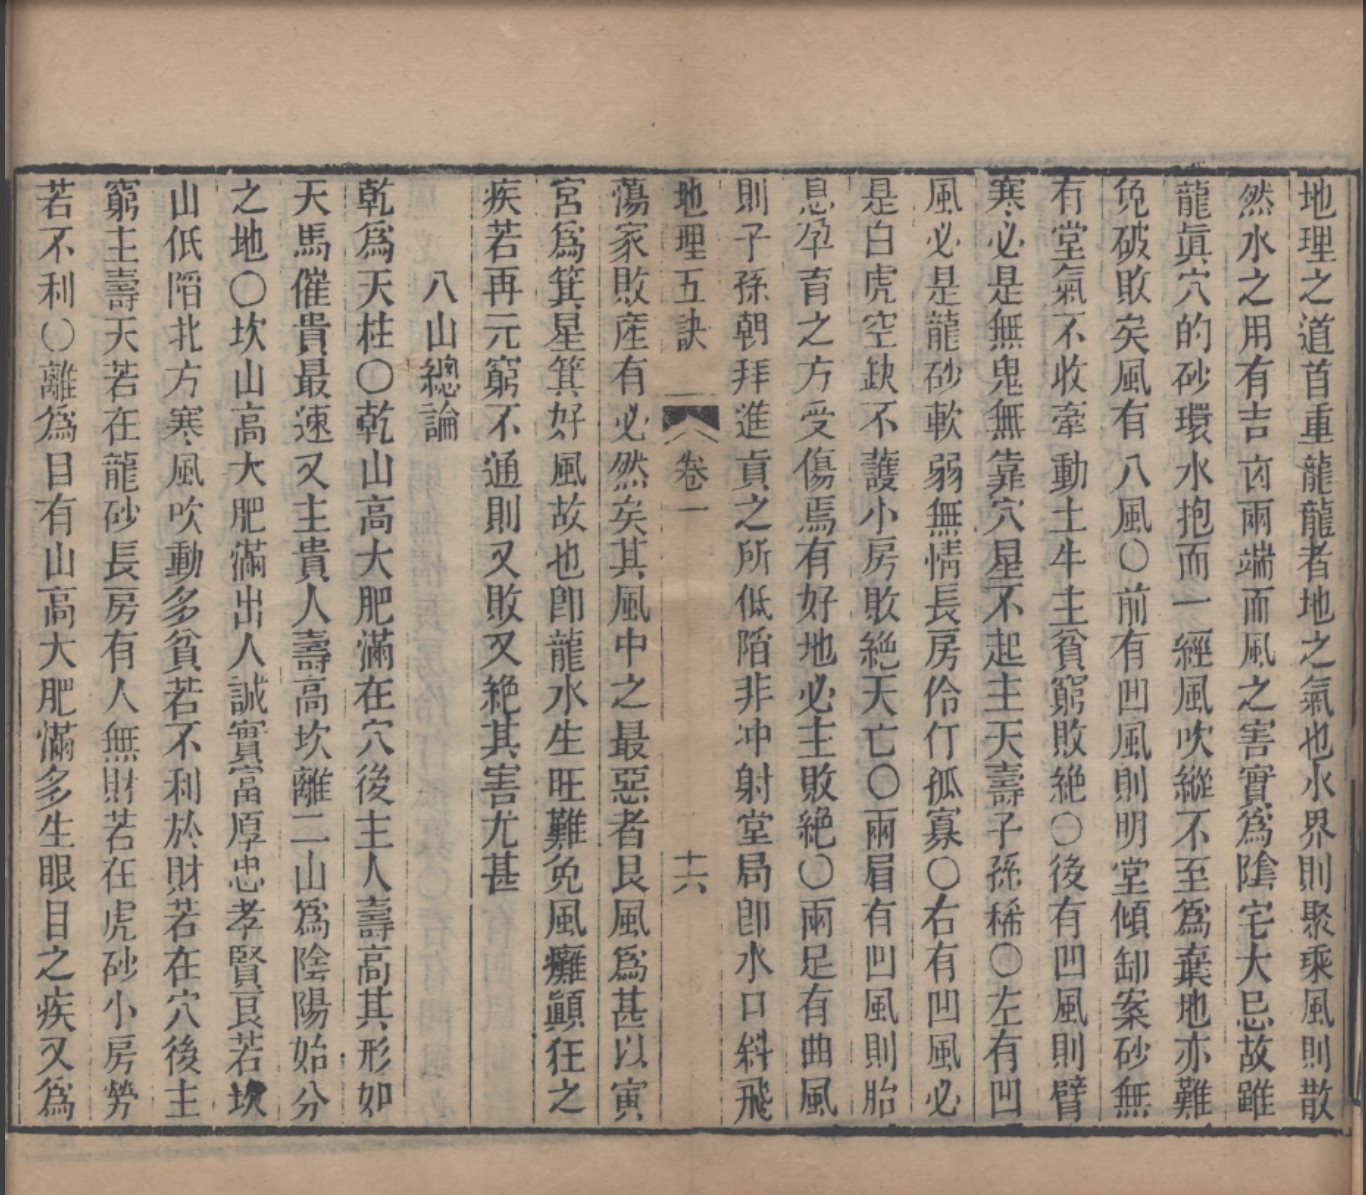 地理之道首重龍龍者地之氣也水界則聚乘風則散
然水之用有吉凶兩端而風之害實爲陰宅大忌故雖
龍眞穴的砂環水抱而一經風吹縱不至爲棄地亦難
免破敗矣風有八風〇前有凹風則明堂傾卸案砂無
有堂氣不收牽動土牛主貧窮敗絶〇後有凹風則臂
寒必是無鬼無靠穴星不起主夭壽子孫稀〇左有凹
風必是龍砂軟弱無情長房伶仃孤寡〇右有凹風必
是白虎空缺不護小房敗絶夭亡〇兩眉有凹風則胎
息孕育之方受傷焉有好地必主敗絶〇兩足有曲風
則子孫朝拜進貢之所低陷非冲射堂局卽水口斜飛
地理五訣 卷一 十六
蕩家敗產有必然矣其風中之最惡者艮風爲甚以寅
宮爲箕星箕好風故也卽龍水生旺難免風癱顚狂之
疾若再元窮不通則又敗又絶其害尤甚
八山總論
乾爲天柱〇乾山高大肥滿在穴後主人壽高其形如
天馬催貴最速又主貴人壽高坎離二山爲陰陽始分
之地〇坎山高大肥滿出人誠實富厚忠孝賢良若坎
山低陷北方寒風吹動多貧若不利於財若在穴後主
窮主壽夭若在龍砂長房有人無財若在虎砂小房勞
若不利〇離爲目有山高大肥滿多生眼目之疾又爲